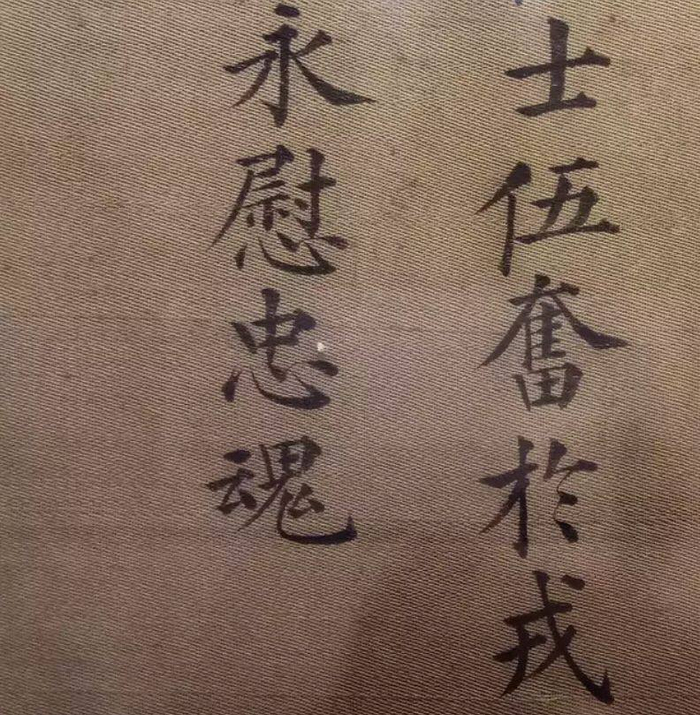 士伍奮於戎
永慰忠魂